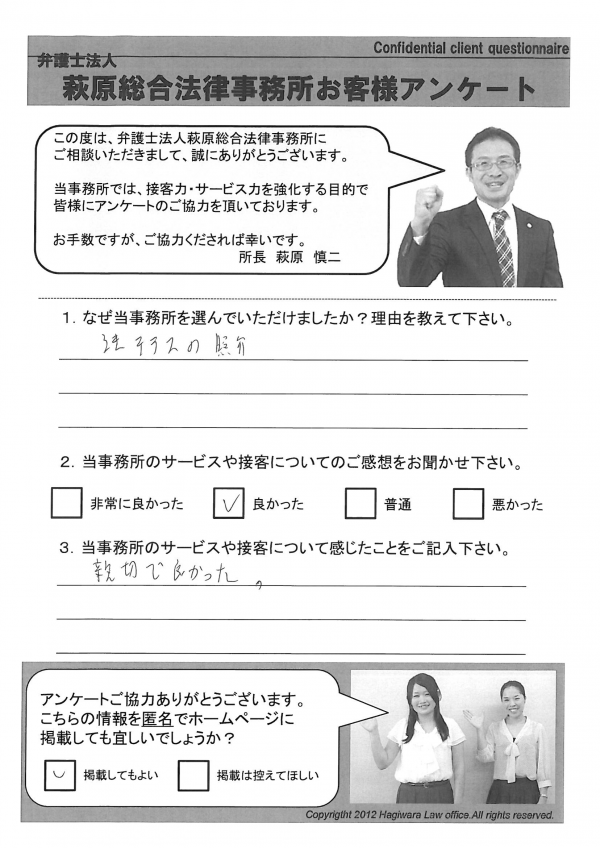 Confidential client questionnaire
弁護士法人
萩原総合法律事務所お客様アンケート
この度は、弁護士法人萩原総合法律事務所に
ご相談いただきまして、誠にありがとうございます。
当事務所では、接客力・サービス力を強化する目的で
皆様にアンケートのご協力を頂いております。
お手数ですが、ご協力くだされば幸いです。
所長 萩原 慎二
1. なぜ当事務所を選んでいただけましたか？理由を教えて下さい。
法テラスの照介
2. 当事務所のサービスや接客についてのご感想をお聞かせ下さい。
非常に良かった ✓ 良かった 普通 悪かった
3. 当事務所のサービスや接客について感じたことをご記入下さい。
親切で良かった。
アンケートご協力ありがとうございます。
こちらの情報を匿名でホームページに
掲載しても宜しいでしょうか？
掲載してもよい 掲載は控えてほしい
Copyrigtht 2012 Hagiwara Law office.All rights reserved.